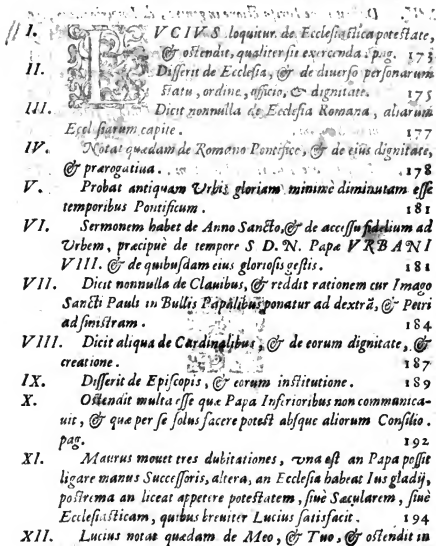 I. LVCIVS loquitur. de Ecclesiastica potestate,
& ostendit, qualiter sit exercenda. pag. 173
II. Disserit de Ecclesia, & de diuerso personarum
statu, ordine, officio, & dignitate. 175
III. Dicit nonnulla de Ecclesia Romana, aliarum
Ecclesiarum capite. 177
IV. Notat quædam de Romano Pontifice, & de eius dignitate,
& prærogatiua. 178
V. Probat antiquam Vrbis gloriam minimè diminutam esse
temporibus Pontificum. 181
VI. Sermonem habet de Anno Sancto, & de accessu fidelium ad
Vrbem, præcipuè de tempore S D. N. Papæ VRBANI
VIII. & de quibusdam eius gloriosis gestis. 181
VII. Dicit nonnulla de Clauibus, & reddit rationem cur Imago
Sancti Pauli in Bullis Papalibus ponatur ad dextrã, & Petri
ad sinistram. 184
VIII. Dicit aliqua de Cardinalibus, & de eorum dignitate, &
creatione. 187
IX. Disserit de Episcopis, & eorum institutione. 189
X. Ostendit multa esse quæ Papa Inferioribus non communica-
uit, & quæ per se solus facere potest absque aliorum Consilio.
pag. 192
XI. Maurus mouet tres dubitationes, vna est an Papa possit
ligare manus Successoris, altera, an Ecclesia habeat Ius gladij,
postrema an liceat appetere potestatem, siuè Sæcularem, siuè
Ecclesiasticam, quibus breuiter Lucius satisfacit. 194
XII. Lucius notat quædam de Meo, & Tuo, & ostendit in